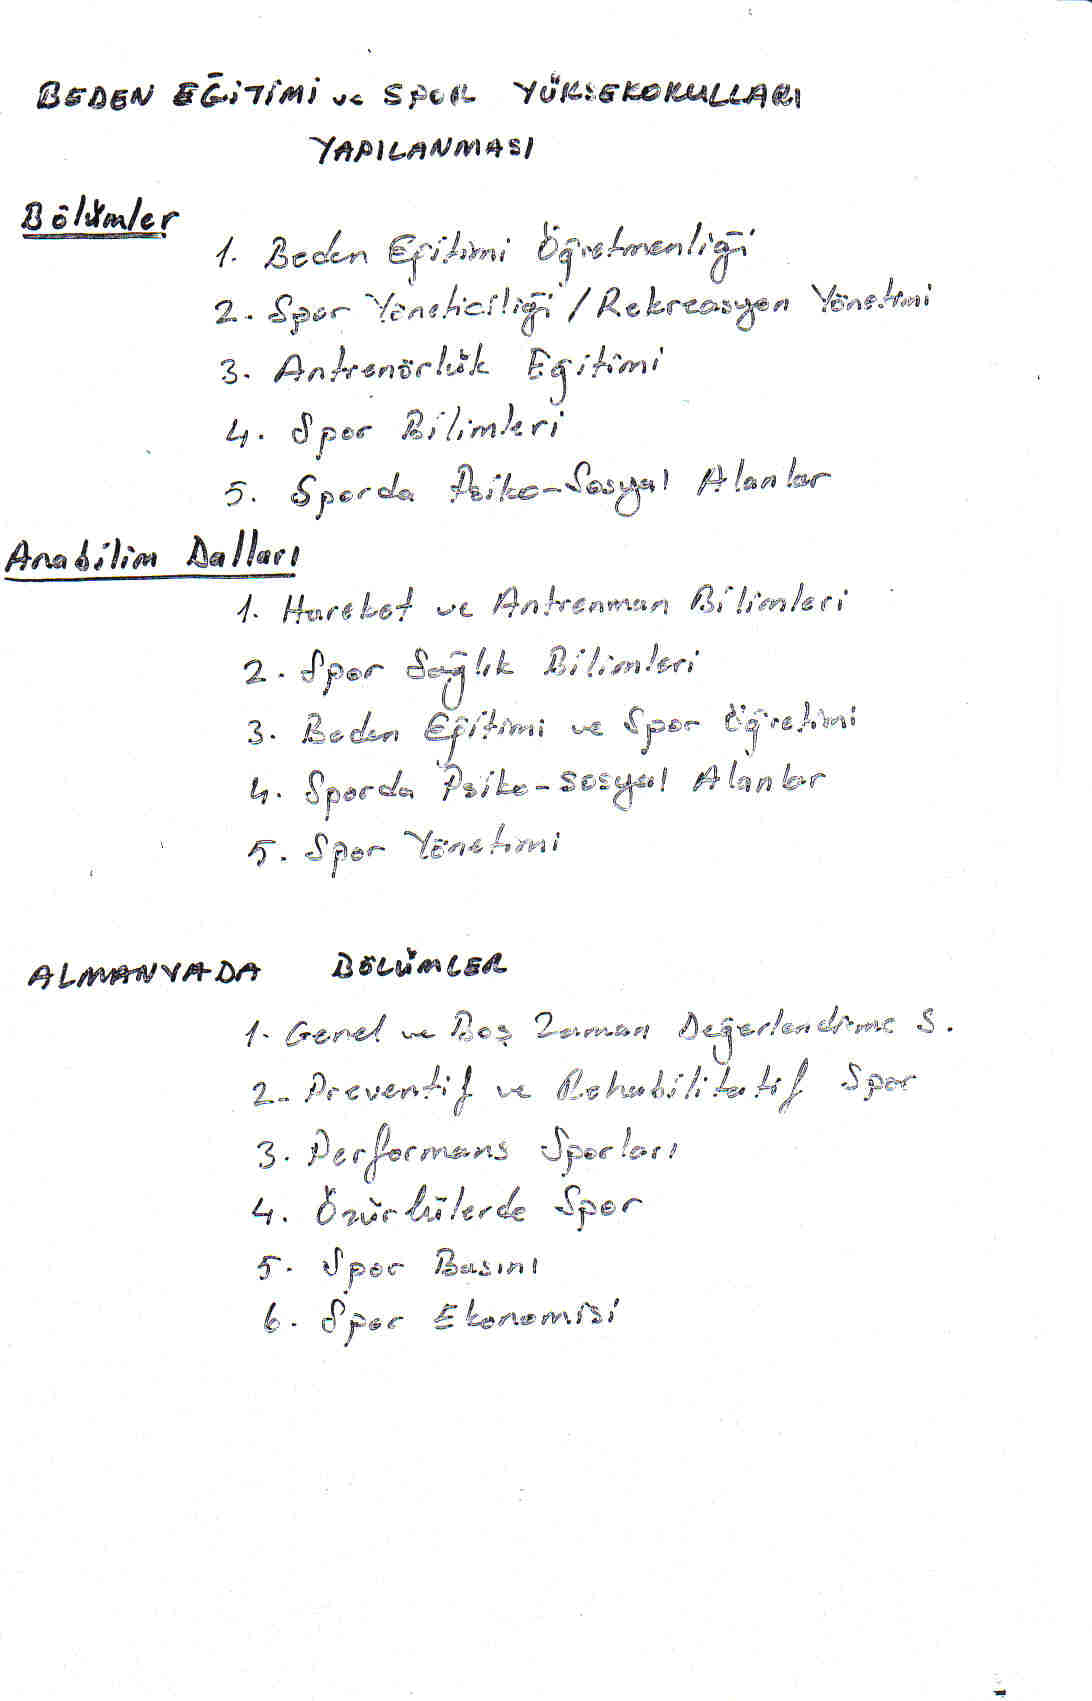 BEDEN EĞİTİMİ ve SPOR YÜKSEKOKULLARI
YAPILANMASI
Bölümler
1. Beden Eğitimi Öğretmenliği
2. Spor Yöneticiliği / Rekreasyon Yönetimi
3. Antrenörlük Eğitimi
4. Spor Bilimleri
5. Sporda Psiko-Sosyal Alanlar
Anabilim Dalları
1. Hareket ve Antrenman Bilimleri
2. Spor Sağlık Bilimleri
3. Beden Eğitimi ve Spor Öğretimi
4. Sporda Psiko-sosyal Alanlar
5. Spor Yönetimi
ALMANYADA BÖLÜMLER
1. Genel ve Boş Zaman Değerlendirme S.
2. Preventif ve Rehabilitatif Spor
3. Performans Sporları
4. Özürlülerde Spor
5. Spor Basını
6. Spor Ekonomisi